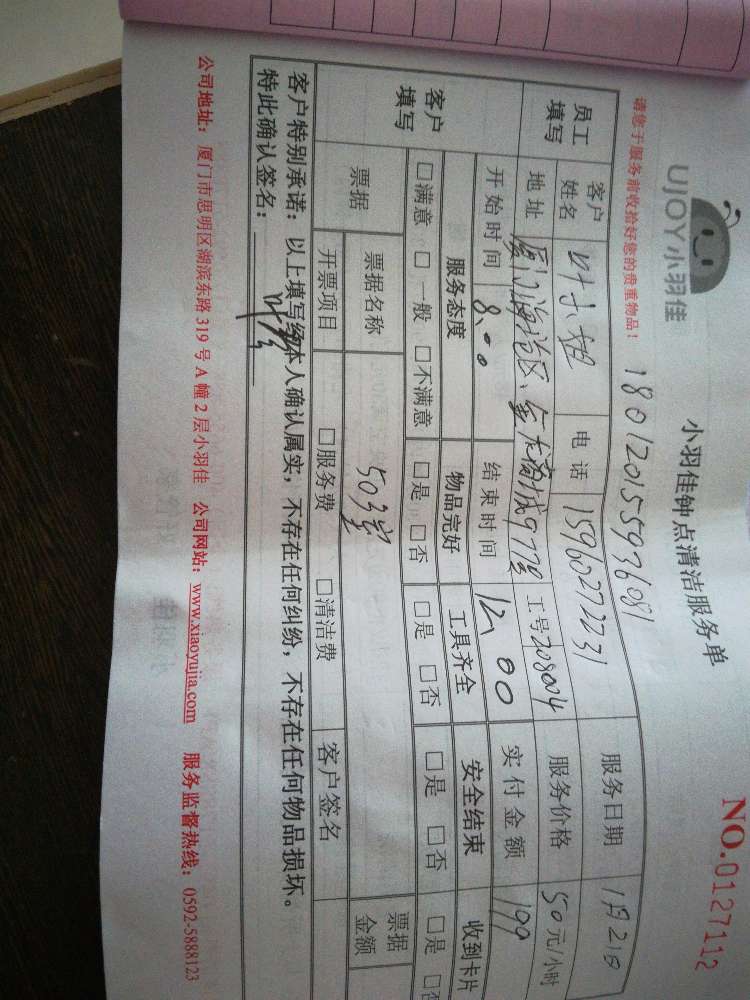 UJOY小羽佳
小羽佳钟点清洁服务单
NO.0127112
180120155936081
请您于服务前收拾好您的贵重物品！
员工填写 客户姓名 叶小姐 电话 15960272231 服务日期 1月21日
地址 厦门海沧区、金龙商城977号 工号208004 服务价格 50元/小时
开始时间 8:00 结束时间 12:00 实付金额 199
客户填写 服务态度 物品完好 工具齐全 安全结束 收到卡片
□满意 □一般 □不满意 □是 □否 □是 □否 □是 □否 □是 □否
票据 票据名称 503室 票据金额
开票项目 □服务费 □清洁费 客户签名
客户特别承诺：以上填写经本人确认属实，不存在任何纠纷，不存在任何物品损坏。
特此确认签名：
公司地址：厦门市思明区湖滨东路319号A幢2层小羽佳 公司网站：www.xiaoyujia.com 服务监督热线：0592-5888123